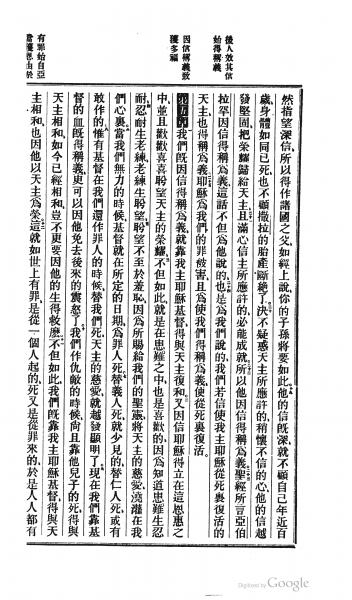 後人效其信
始得稱義
因信稱義致
獲多福
有罪始自亞
當獲恩由於
然指望深信、所以得作諸國之父、如經上說、你的子孫將要如此、他的信旣深、就不顧自己年近百
歲、身體如同已死、也不顧撒拉的胎產斷絕了、決不疑惑天主所應許的、稍懷不信的心、他的信越
發堅固、把榮耀歸給天主、且滿心信主所應許的必能成就、所以他因信得稱爲義、聖經所言亞伯
拉罕因信得稱爲義、這話不但爲他說的、也是爲我們說的、我們若信使我主耶穌從死裏復活的
天主、也得稱爲義、耶穌爲我們的罪被害、且爲使我們得稱爲義、使從死裏復活、
第五章 我們旣因信得稱爲義、就靠我主耶穌基督、得與天主復和、又因信耶穌、得立在這恩惠之
中、並且歡歡喜喜盼望天主的榮耀、不但如此、就是在患難之中、也是歡歡喜喜的、因爲知道患難生忍
耐、忍耐生老練、老練生盼望、盼望不至於羞恥、因爲所賜給我們的聖靈、將天主的慈愛、澆灌在我
們心裏、當我們無力的時候、基督就在所定的日期、爲罪人死、替義人死、就少見的、替仁人死、或有
敢作的、惟有基督在我們還作罪人的時候、替我們死、天主的慈愛、就越發顯明了、現在我們靠基
督的血、旣得稱義、更可以因他免去後來的震怒了、我們作仇敵的時候、尚且靠他兒子的死、得與
天主相和、如今已經相和、豈不更要因他的生得救麼、不但如此、我們旣靠我主耶穌基督、得與天
主相和、也因他以天主爲榮、這就如世上有罪、是從一個人起的、死又是從罪來的、於是人人都有
Digitized by Google